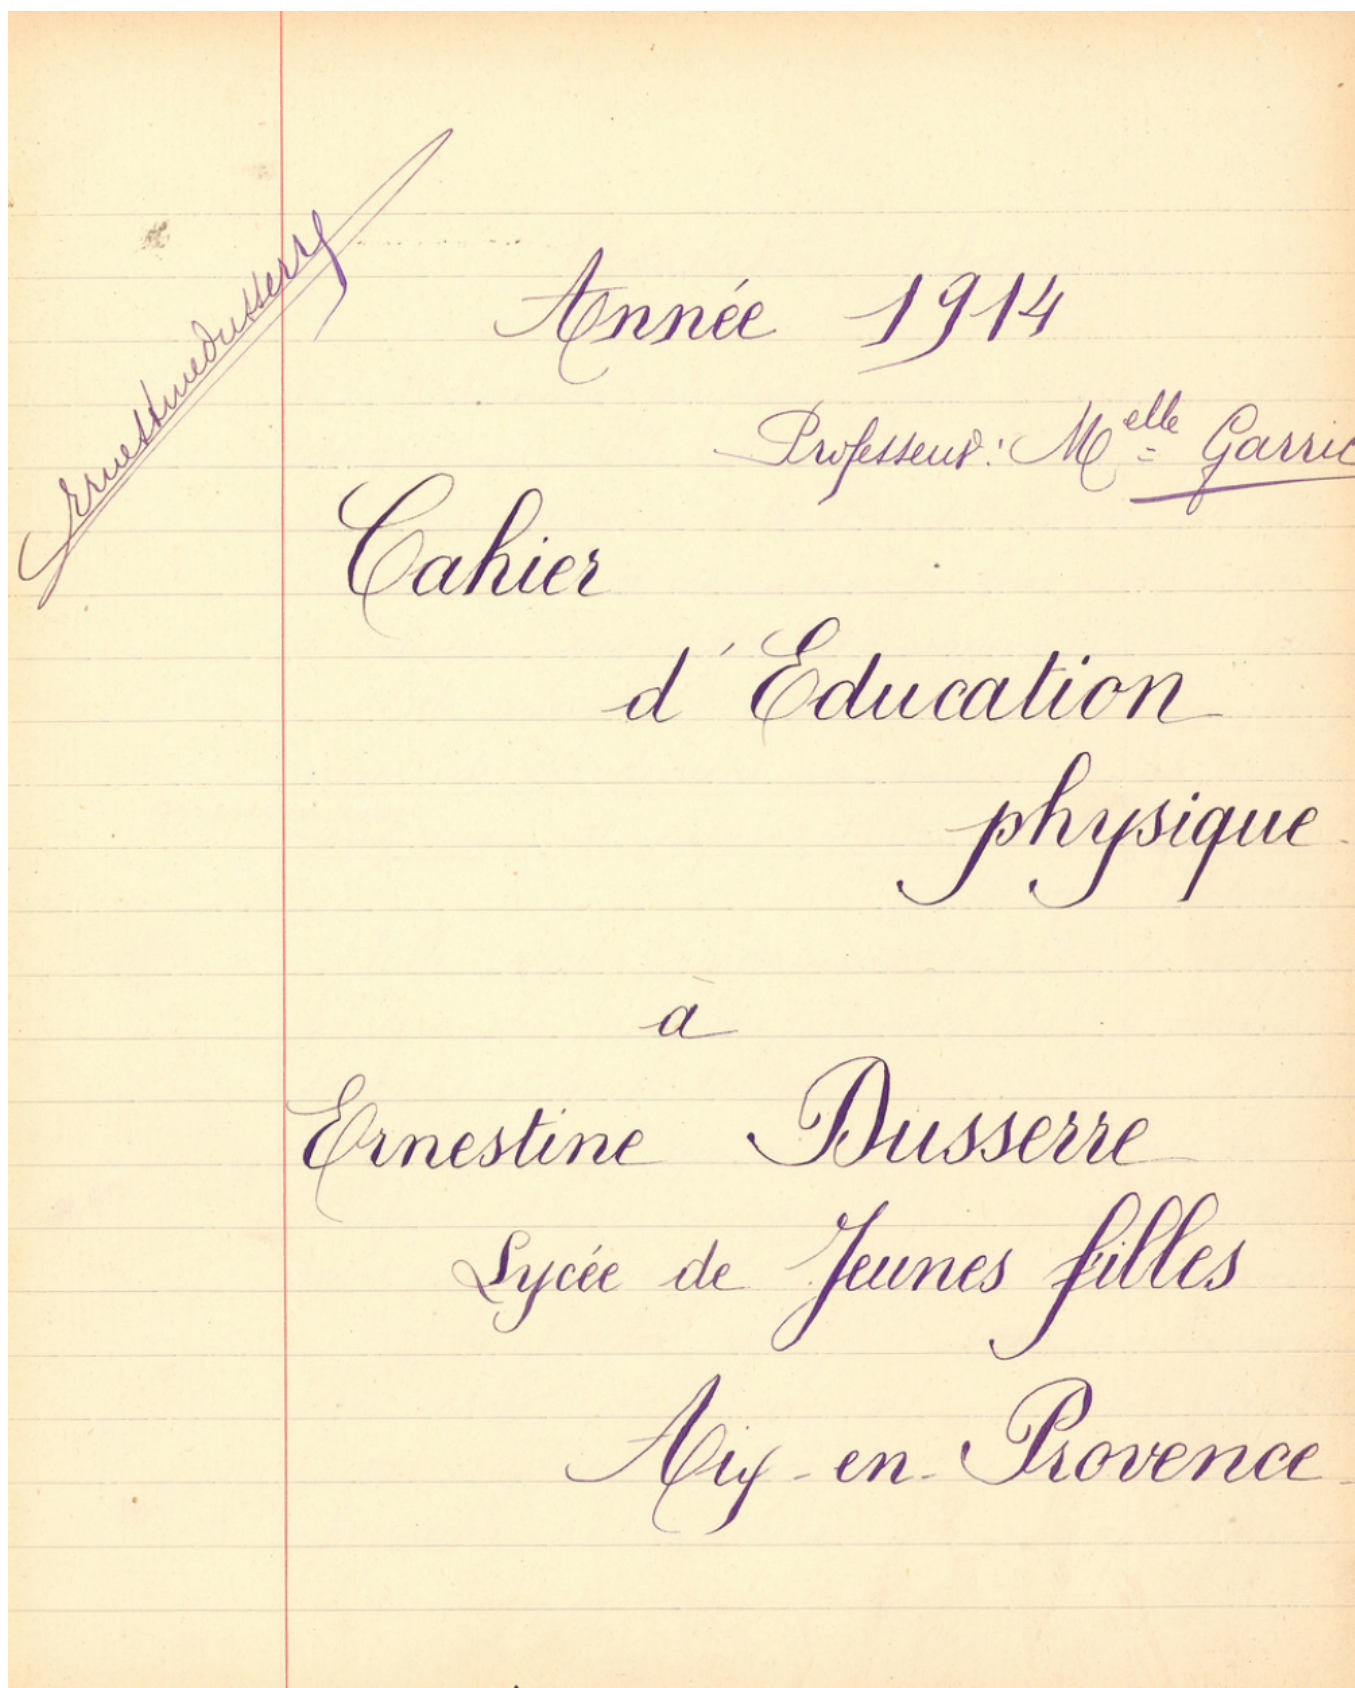 Ernestine Dusserre
Année 1914
Professeur: Melle Garric
Cahier
d'Education
physique
à
Ernestine Dusserre
Lycée de Jeunes filles
Aix-en-Provence